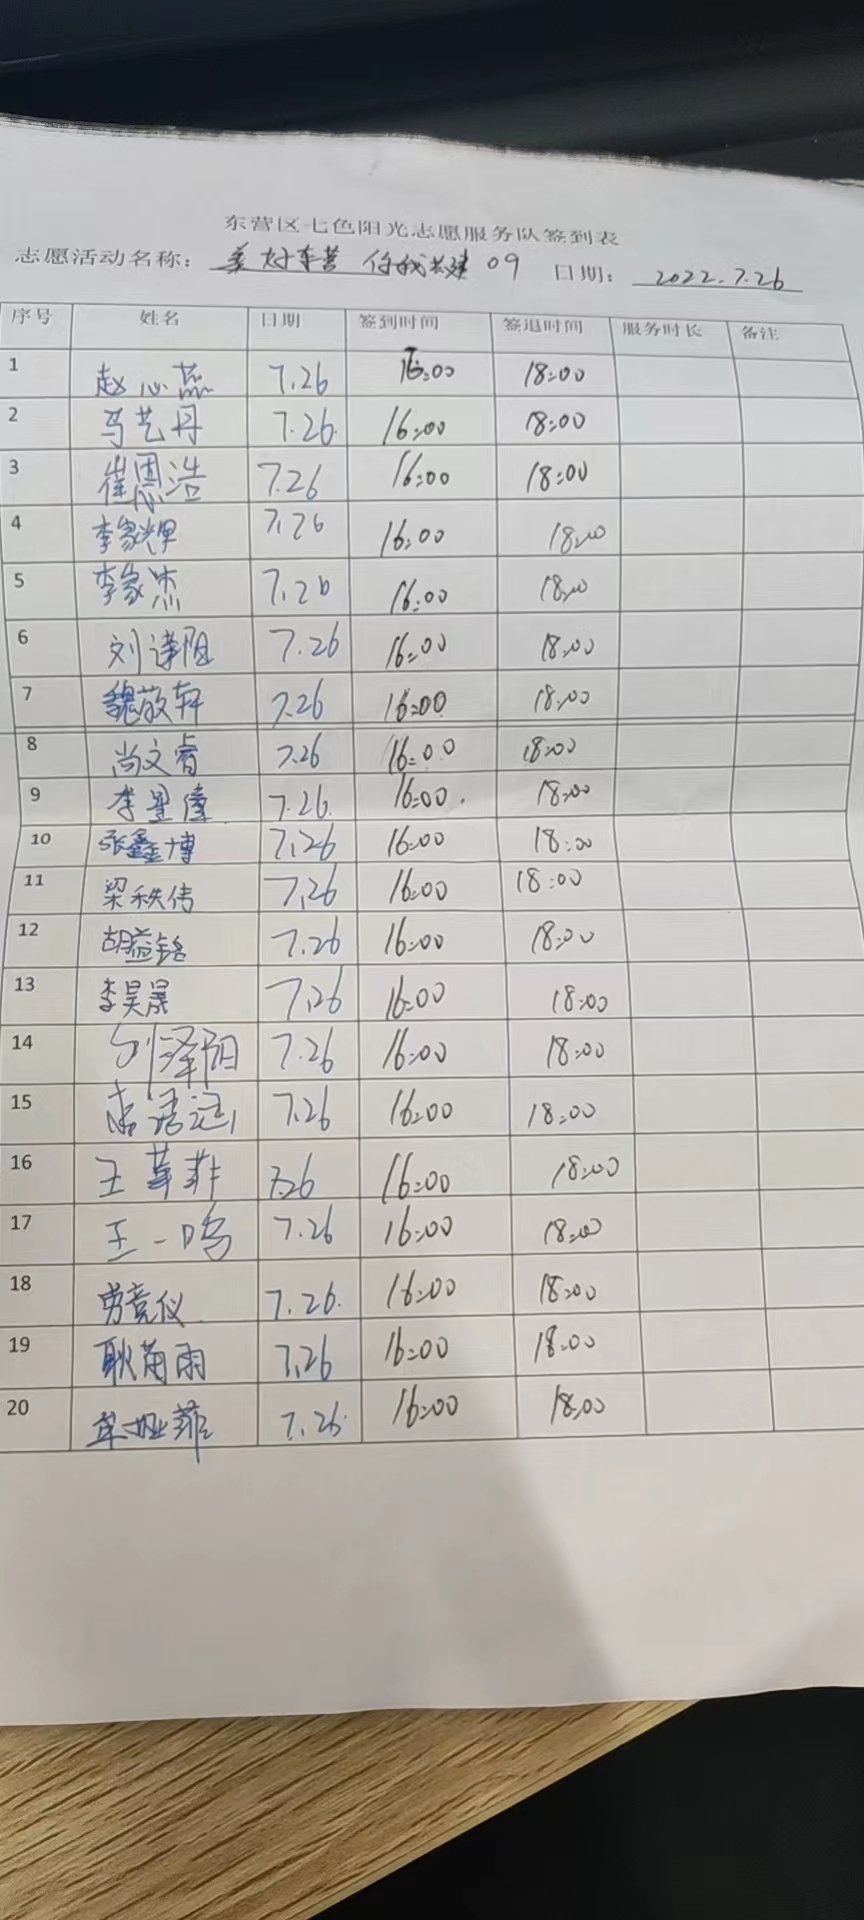 东营区七色阳光志愿服务队签到表
志愿活动名称: 美好东营 你我共建 09 日期: 2022.7.26
序号 姓名 日期 签到时间 签退时间 服务时长 备注
1 赵心蕊 7.26 16:00 18:00
2 马艺丹 7.26. 16:00 18:00
3 崔恩浩 7.26 16:00 18:00
4 李家辉 7.26 16:00 18:00
5 李家杰 7.26 16:00 18:00
6 刘 7.26 16:00 18:00
7 魏敬轩 7.26 16:00 18:00
8 尚文睿 7.26 16:00 18:00
9 李 7.26. 16:00. 18:00
10 张鑫博 7.26 16:00 18:00
11 梁秩伟 7.26 16:00 18:00
12 胡益铭 7.26 16:00 18:00
13 李昊晟 7.26 16:00 18:00
14 刘泽阳 7.26 16:00 18:00
15 7.26 16:00 18:00
16 王菲 7.26 16:00 18:00
17 王一鸣 7.26 16:00 18:00
18 竞仪 7.26. 16:00 18:00
19 耿雨 7.26 16:00 18:00
20 娅菲 7.26. 16:00 18:00